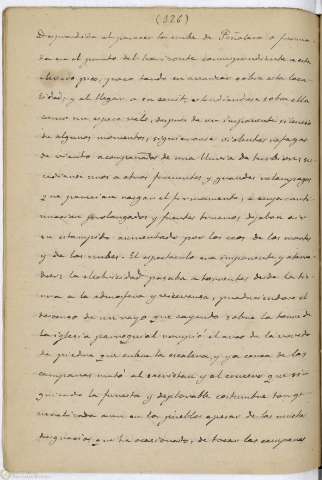 (126)
Desprendida al parecer la nube de Peñalara o forma-
da en el punto del horizonte correspondiente a este
elevado pico, poco tardó en avanzar sobre esta loca-
lidad, y al llegar a su zenit, extendiendose sobre ella
como un espeso velo, despues de un imponente silencio
de algunos momentos, siguieronse violentas rafagas
de viento acompañadas de una lluvia de
unos a otros frecuentes y grandes relampagos
que parecian rasgar el firmamento, a cuya conti-
nuacion prolongados y fuertes truenos dejaban oir
su estampido aumentado por los ecos de los montes
y de las nubes. El espectaculo era imponente y aterra-
dor; la electricidad pasaba a torrentes desde la tie-
rra a la atmosfera y viceversa, produciendose el
descenso de un rayo que cayendo sobre la torre de
la iglesia parroquial rompió el arco de la boveda
de piedra que cubre la escalera, y ya cerca de las
campanas mató al sacristan y al que si-
guiendo la funesta y deplorable costumbre tan ge-
neralizada aun en los pueblos apesar de las muchas
desgracias que ha ocasionado, de tocar las campanas